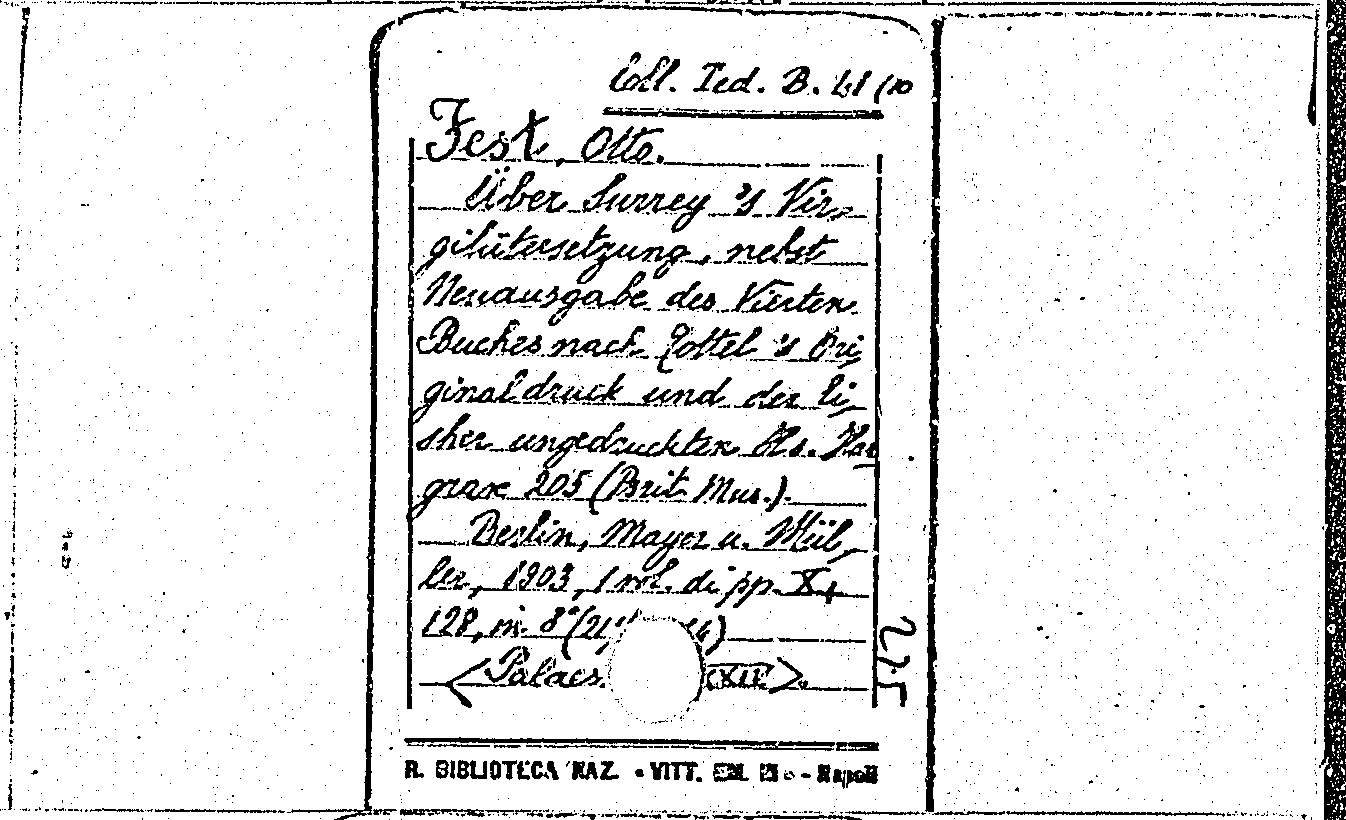 Coll. Ted. B. 41 (10
Fest, Otto.
Über Surrey 's Vir-
gilütersetzung, nebst
Neuausgabe des Vierten
Buches nach Tottel 's Ori,
ginaldruck und der bi,
sher ungedruckten Hs. Har
grave 205 (Brit. Mus.).
Berlin, Mayer u. Mül,
ler, 1903, 1 vol. di pp. X,
128, in 8° (21
<Palaes. XII>.
275
R. BIBLIOTECA NAZ. - VITT. EM. - Napoli